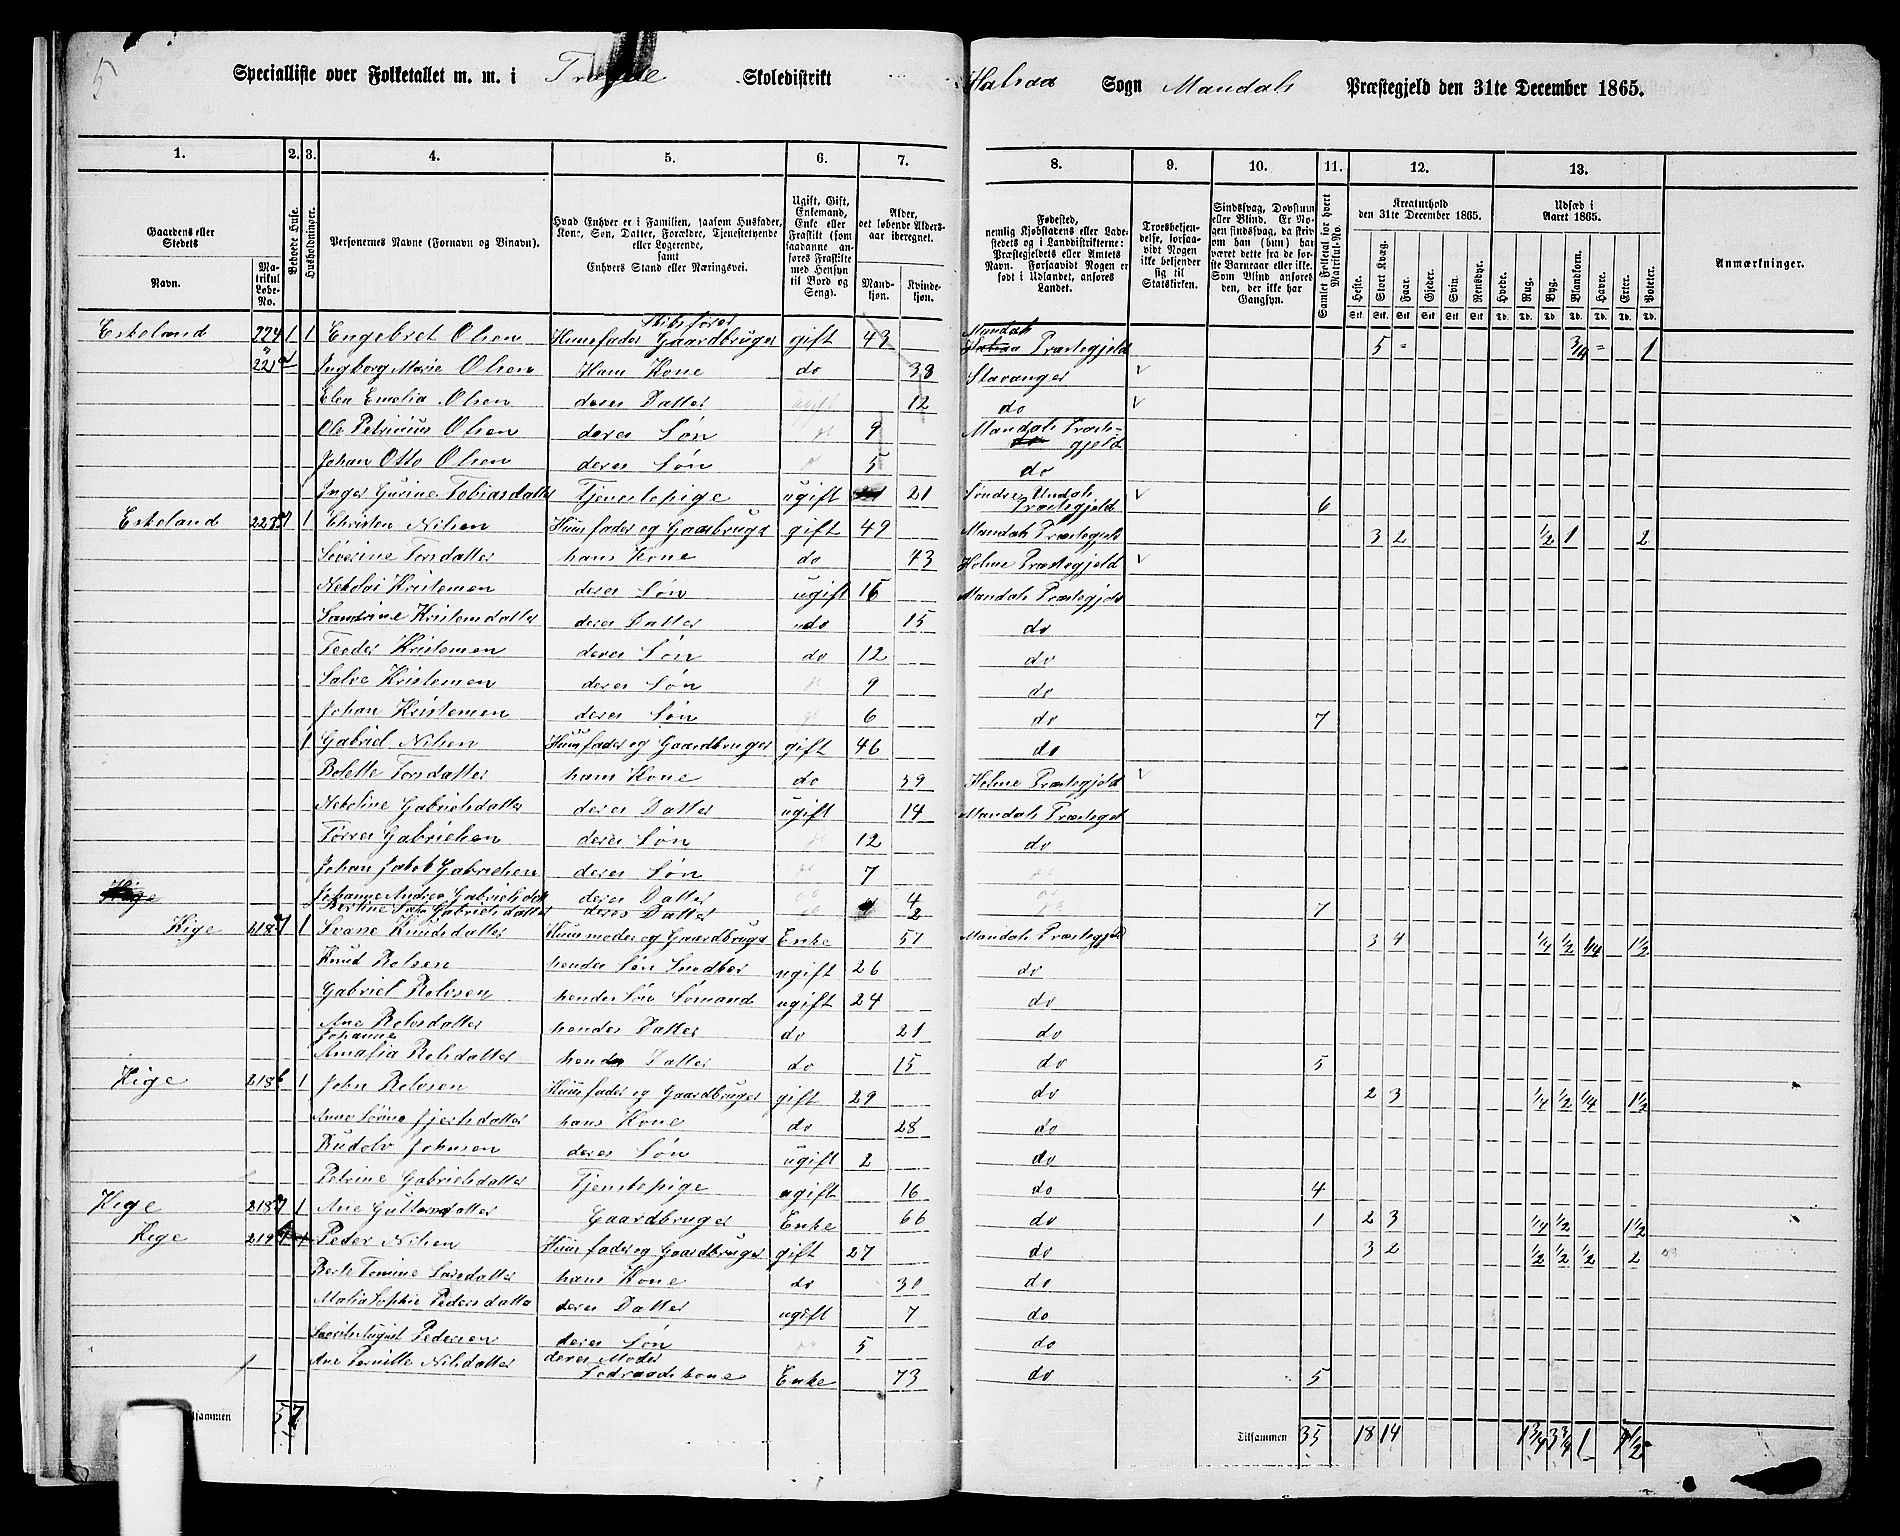 5
Specialliste over Folketallet m. m. i Skoledistrikt Halsaa Sogn Mandals Præstegjeld den 31te December 1865.
1. 2. 3. 4. 5. 6. 7. 8. 9. 10. 11. 12. 13.
Gaardens eller Stedets
Navn.
Matrikul Løbe-No.
Bebøede Huse.
Husholdninger.
Personernes Navne (Fornavn og Binavn).
Hvad Enhver er i Familien, saasom Husfader, Kone, Søn, Datter, Forældre, Tjenestetyende eller Logerende, samt Enhvers Stand eller Næringsvei.
Ugift, Gift, Enkemand, Enke eller Fraskilt (som saadanne anføres Fraskilte med Hensyn til Bord og Seng).
Alder, det løbende Aldersaar iberegnet.
Mandkjøn.
Kvindekjøn.
Fødested, nemlig Kjøbstadens eller Ladestedets og i Landdistrikterne: Præstegjeldets eller Amtets Navn. Forsaavidt Nogen er født i Udlandet, anføres Landet.
Troesbekjendelse, forsaavidt Nogen ikke bekjender sig til Statskirken.
Sindssvag, Døvstum eller Blind. Er Nogen sindssvag, da skriv om han (hun) har været dette fra de første Barneaar eller ikke. Som Blind anføres den, der ikke har Gangsyn.
Samlet Folketal for hvert Matrikul-No.
Kreaturhold den 31te December 1865.
Heste. Stort Kvæg. Faar. Gjeder. Svin. Rensdyr.
Udsæd i Aaret 1865.
Hvede. Rug. Byg. Blandkorn. Havre. Erter. Poteter.
Anmærkninger.
Eskeland 224 1 1 Engebret Olsen Huusfader Skibsfører Gaardbruger gift 43 Mandals Præstegjeld 5 3/4 1
221 Ingborg Marie Olsen Hans Kone do 38 Stavanger
Elen Emelia Olsen deres Datter ugift 12 do
Ole Petrinius Olsen deres Søn 9 Mandals Præstegjeld
Johan Otto Olsen deres Søn 5 do
Inger Gurine Tobiasdatter Tjenestepige ugift 21 Søndre Undals Præstegjeld 6
Eskeland 223 1 Christen Nilsen Huusfader og Gaarbruger gift 49 Mandals Præstegjeld 3 2 1/2 1 2
Severine Torsdatter hans Kone do 43 Holme Præstegjeld
Nekolai Kristensen deres Søn ugift 16 Mandals Præstegjeld
Sandrine Kristensdatter deres Datter do 15 do
Teoder Kristensen deres Søn do 12 do
Salve Kristensen deres Søn 9 do
Johan Kristensen deres Søn 6 do 7
1 Gabriel Nilsen Huusfader og Gaardbruger gift 46 do
Bolette Torsdatter hans Kone do 39 Holme Præstegjeld
Nekoline Gabrielsdatter deres Datter ugift 14 Mandals Præstegjel
Torres Gabrielsen deres Søn 12 do
Johan Jakob Gabrielsen deres Søn 7
Hige Johanne Andrea Gabrielsdat deres Datter 4
Gabrielsdatter deres Datter 2 7
Hige 218 1 Svane Knudsdatter Huusmoder og Gaardbruger Enke 51 Mandals Præstegjeld 3 4 1/4 1/2 1/4 1 1/2
Knud Rolsen hendes Søn Snedker ugift 26 do
Gabriel Rolvsen hendes Søn Sømand ugift 24 do
Ane Rolvsdatter hendes Datter do 21 do
Johanne Amalia Rolvsdatter hendes Datter do 15 do 5
Hige 218 1 John Rolvsen Huusfader og Gaardbruger gift 29 do 2 3 1/4 1/2 1/4 1 1/2
Anne hans Kone do 28 do
Rudolv Johnsen deres Søn ugift 2 do
Petrine Gabrielsdatter Tjenstepige ugift 16 do 4
Hige 218 1 Ane Guttormsdatter Gaardbruger Enke 66 do 1 2 3 1/4 1/2 1 1/2
Hige 219 1 Peder Nilsen Huusfader og Gaardbruger gift 27 do 3 2 1/2 1/2 1/2 2
Berte Tomine hans Kone do 30 do
Malia Sophie Pedersdatter deres Datter ugift 7 do
August Pedersen deres Søn 5 do
Ane Pernille Nilsdatter deres Moder Enke 73 do 5
Tilsammen 5 7 Tilsammen 35 18 14 1 3/4 3 3/4 1 9 1/2